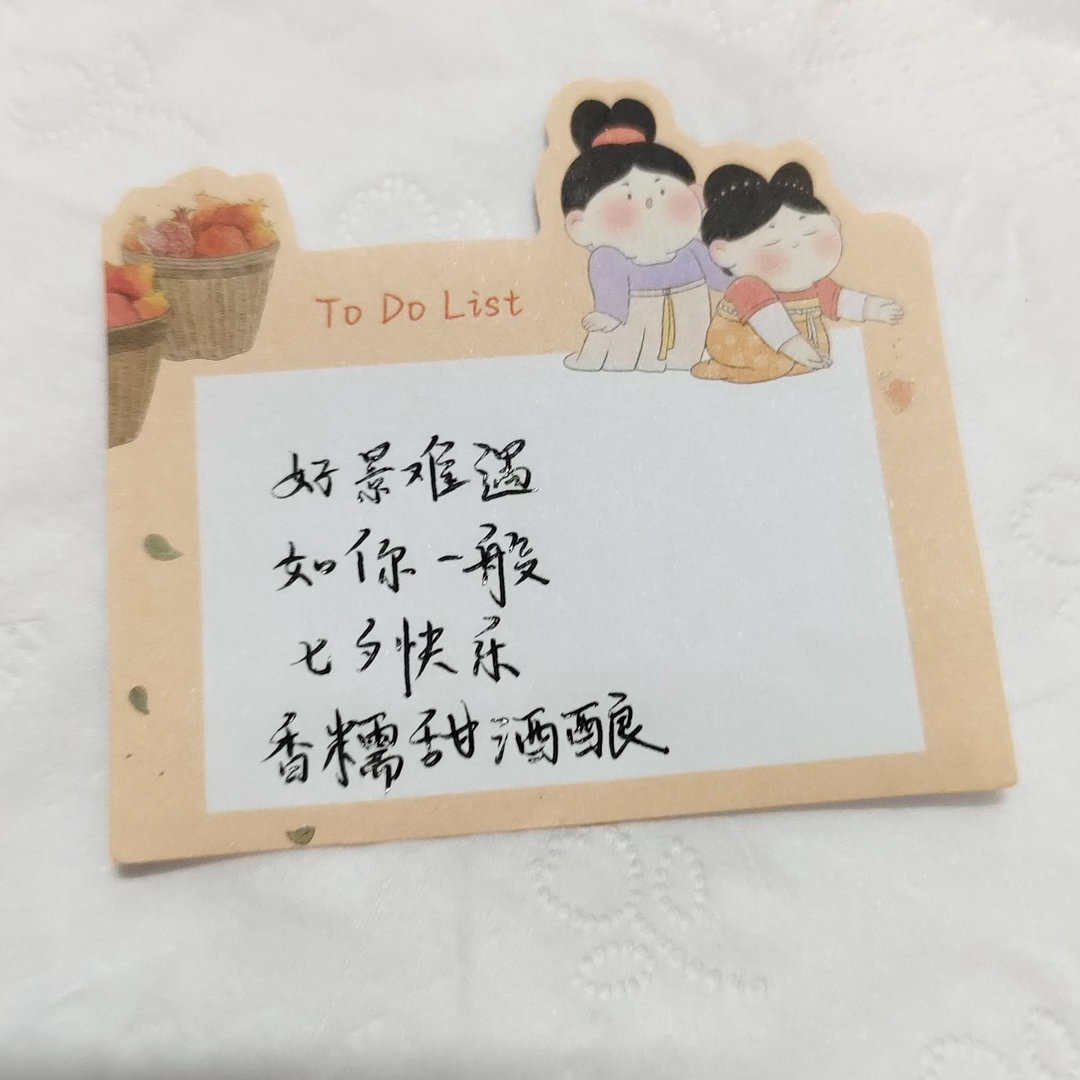 To Do List
好景难遇
如你一般
七夕快乐
香糯甜酒酿